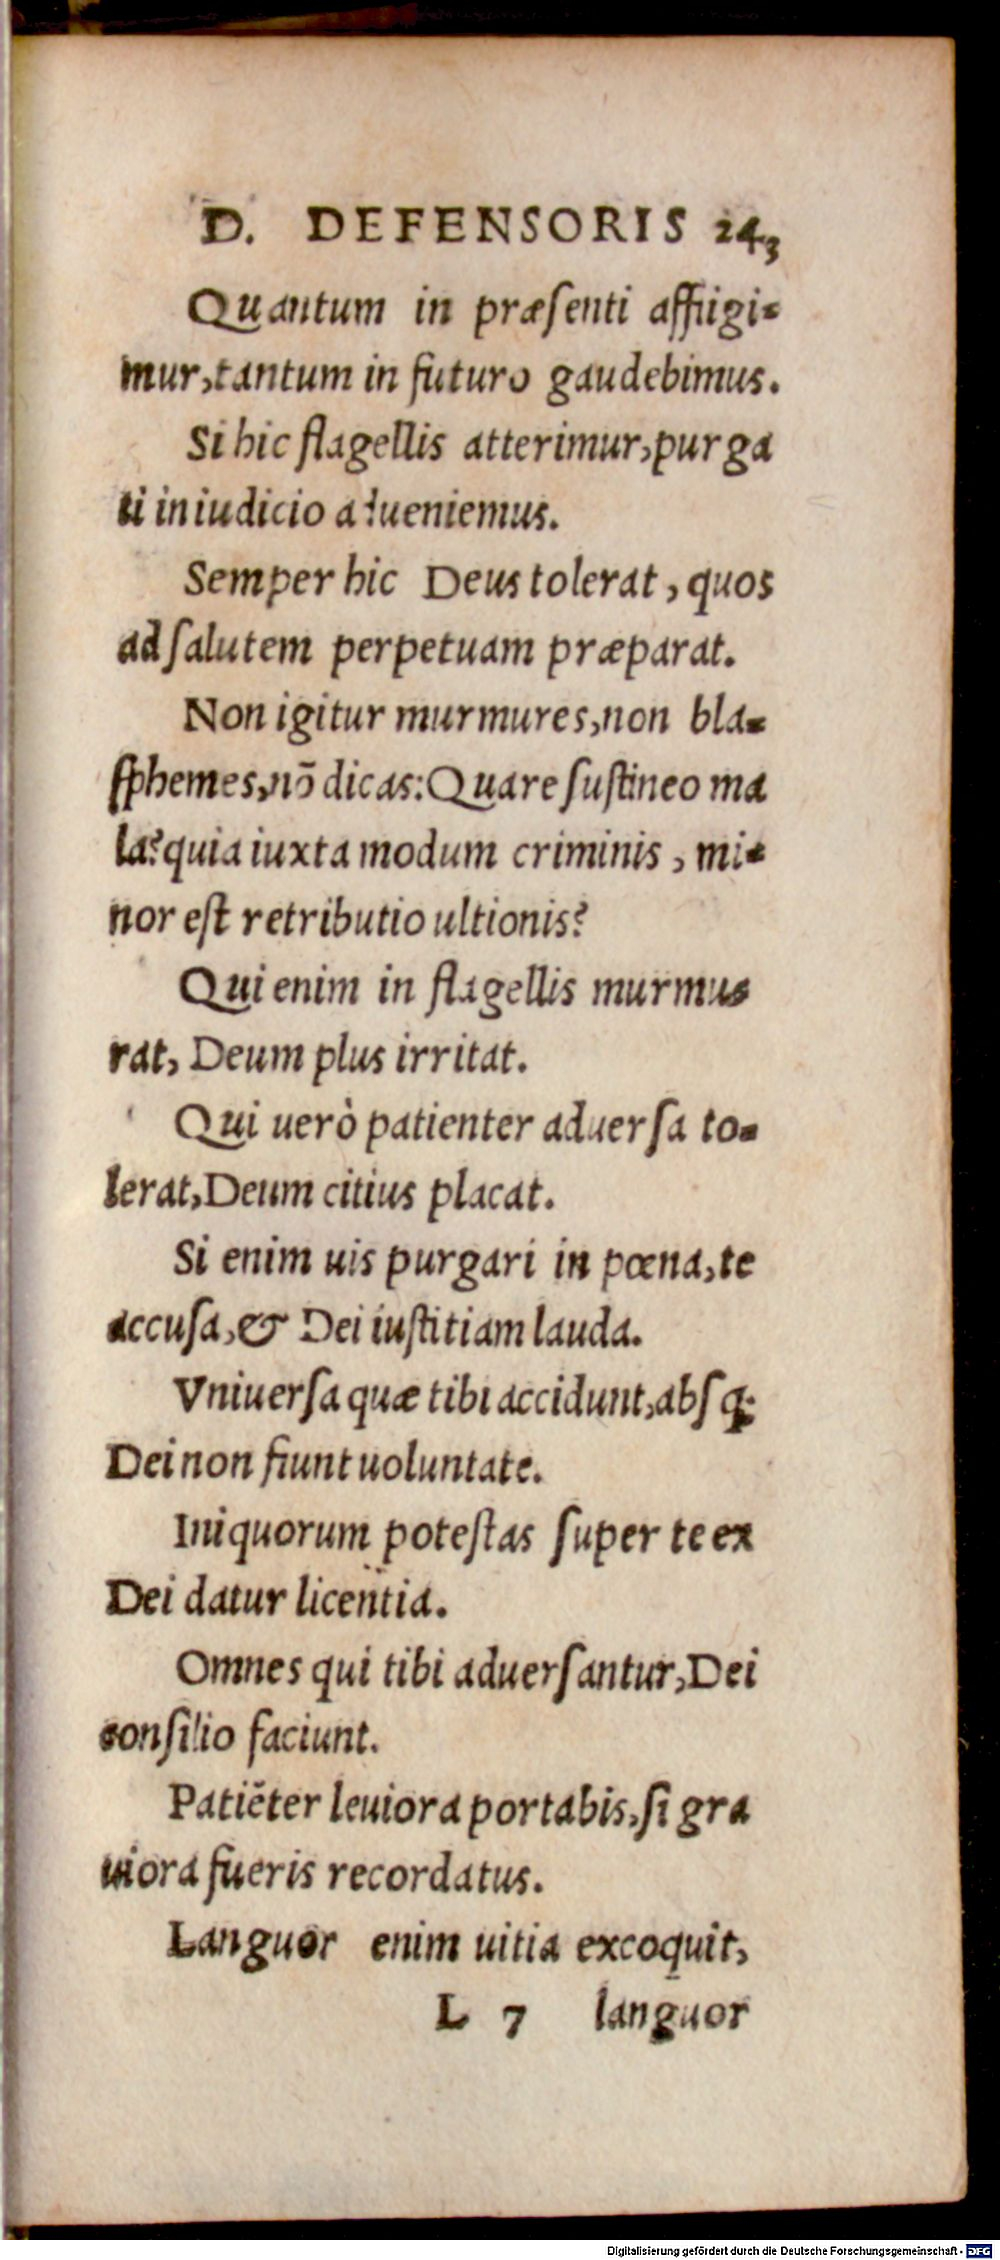 D. DEFENSORIS 243
Quantum in præſenti affligi-
mur, tantum in futuro gaudebimus.
Si hic flagellis atterimur, purga
ti in iudicio adueniemus.
Semper hic Deus tolerat, quos
ad ſalutem perpetuam præparat.
Non igitur murmures, non bla-
ſphemes, nō dicas: Quare ſuſtineo ma
la? quia iuxta modum criminis, mi-
nor eſt retributio ultionis?
Qui enim in flagellis murmu-
rat, Deum plus irritat.
Qui uerò patienter aduerſa to-
lerat, Deum citius placat.
Si enim uis purgari in pœna, te
accuſa, & Dei iuſtitiam lauda.
Vniuerſa quæ tibi accidunt, abſq;
Dei non fiunt uoluntate.
Iniquorum poteſtas ſuper te ex
Dei datur licentia.
Omnes qui tibi aduerſantur, Dei
conſilio faciunt.
Patiēter leuiora portabis, ſi gra
uiora fueris recordatus.
Languor enim uitia excoquit,
L 7 languor
Digitalisierung gefördert durch die Deutsche Forschungsgemeinschaft - DFG